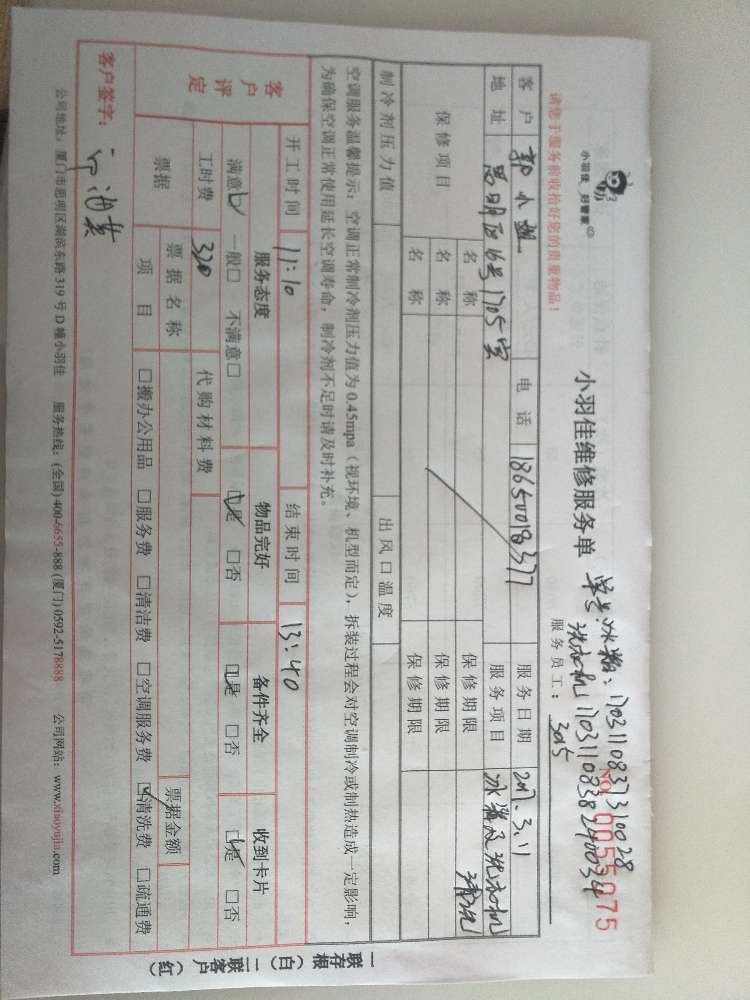 小羽佳 好管家
小羽佳维修服务单
单号:冰箱:1703110837310028
洗衣机1703110838240034
NO 0055075
请您于服务前收拾好您的贵重物品!
服务员工: 3015
客户 郭小姐 电话 18650018377 服务日期 2017.3.11
地址 思明区16号1705室 服务项目 冰箱及洗衣机清洗
保修项目 名称 保修期限
名称 保修期限
名称 保修期限
制冷剂压力值 出风口温度
空调服务温馨提示:空调正常制冷剂压力值为0.45mpa(视环境、机型而定),拆装过程会对空调制冷或制热造成一定影响,
为确保空调正常使用延长空调寿命,制冷剂不足时请及时补充。
开工时间 11:10 结束时间 13:40
客户评定 服务态度 物品完好 备件齐全 收到卡片
满意☑ 一般□ 不满意□ ☑是 □否 ☑是 □否 ☑是 □否
工时费 320 代购材料费
票据 票据名称 票据金额
项目 □搬办公用品 □服务费 □清洁费 □空调服务费 ☑清洗费 □疏通费
客户签字:
公司地址:厦门市思明区湖滨东路319号D幢小羽佳 服务热线:(全国)400-6655-888 (厦门)0592-5178888 公司网站:www.xiaoyujia.com
一联存根(白) 二联客户(红)